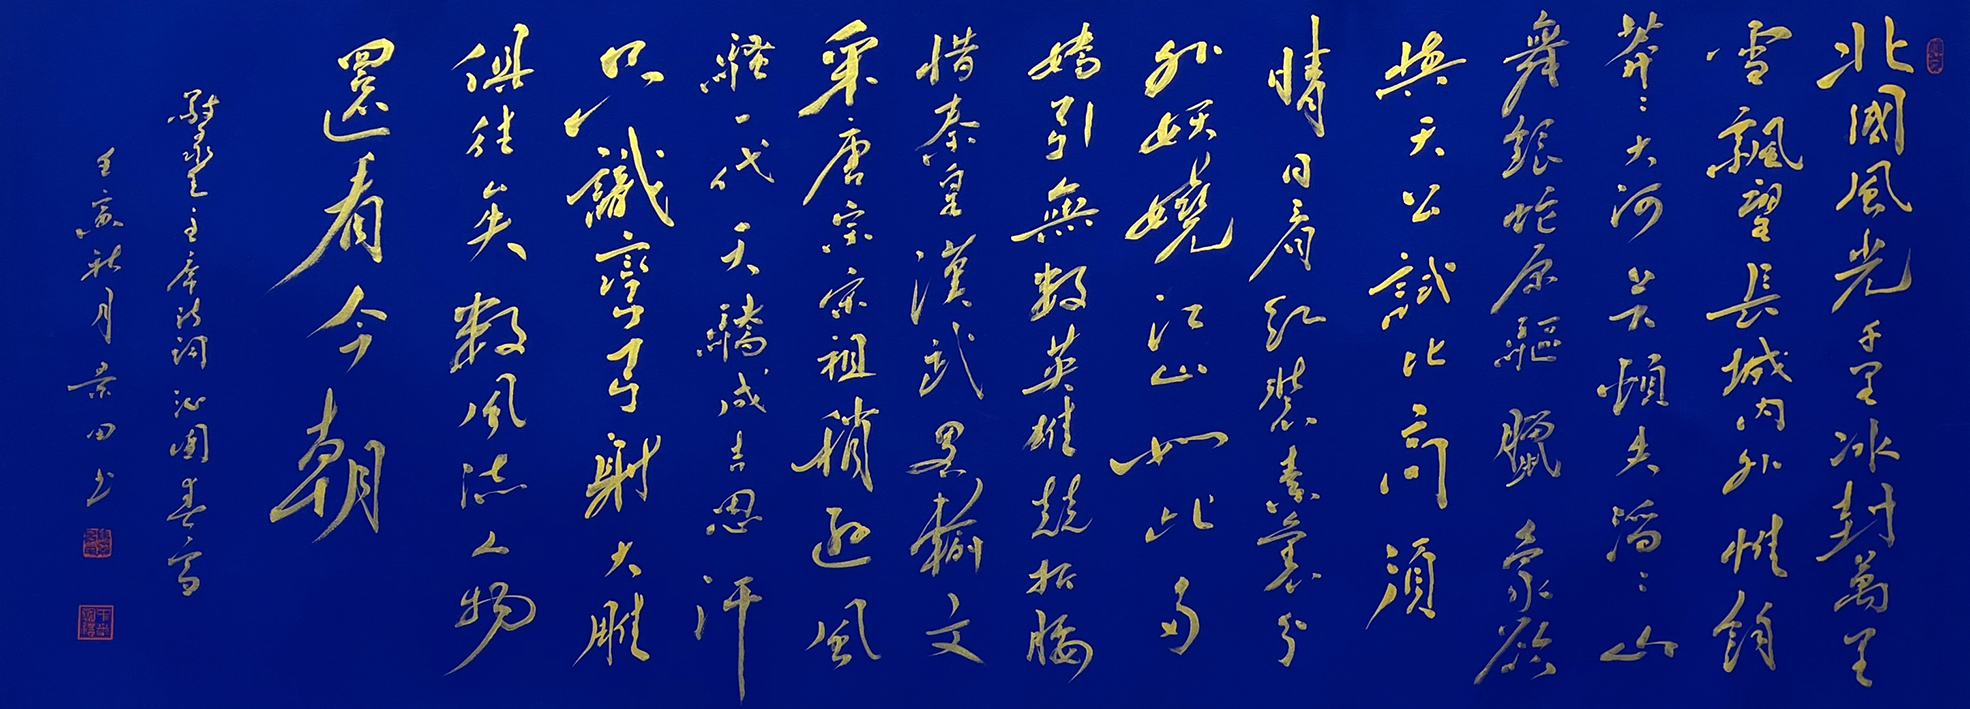 北國風光千里冰封萬里
雪飄望長城內外惟餘
莽〻大河上下頓失滔〻山
舞銀蛇原驅臘象欲
與天公試比高須
晴日看紅裝素裹分
外妖嬈江山如此多
嬌引無數英雄競折腰
惜秦皇漢武略輸文
采唐宗宋祖稍遜風
騷一代天驕成吉思汗
只識彎弓射大雕
俱往矣數風流人物
還看今朝
敬录毛主席诗词沁園春雪
壬寅秋月景田书